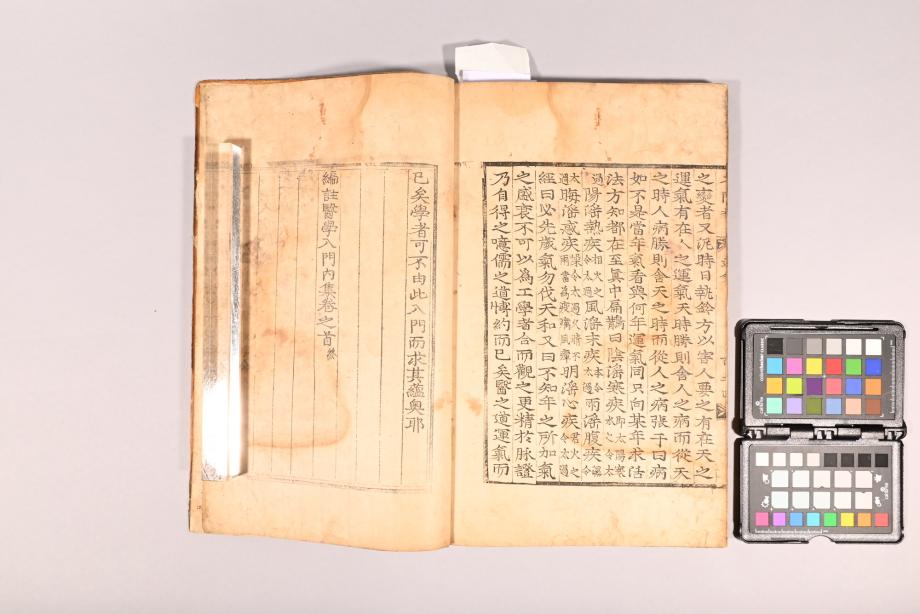 之變者又泥時日執鈐方以害人要之有在天之
運氣有在人之運氣天時勝則舍人之病而從天
之時人病勝則舍天之時而從人之病張子曰病
如不是當年氣看與何年運氣同只向某年求活
法方知都在至眞中扁鵲曰陰淫寒疾
陽淫熱疾 風淫末疾 雨淫腹疾
晦淫惑疾 明淫心疾
經曰必先歲氣勿伐天和又曰不知年之所加氣
之盛衰不可以爲工學者合而觀之更精於脉證
乃自得之噫儒之道博約而已矣醫之道運氣而
已矣學者可不由此入門而求其蘊奧耶
編註醫學入門內集卷之首終